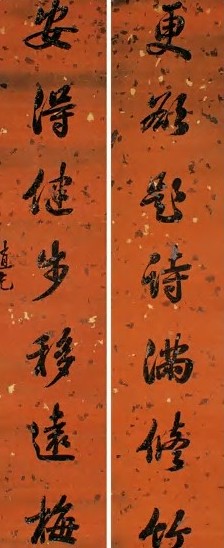 更欲題詩滿修竹
安得健步移遠梅